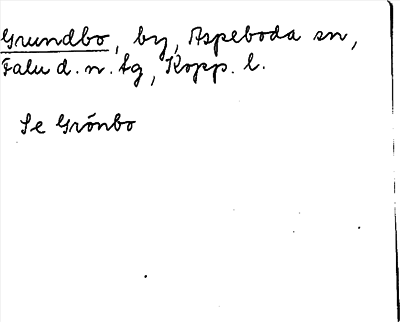 Grundbo, by, Aspeboda sn,
Falu d. n. tg, Kopp. l.
Se Grönbo